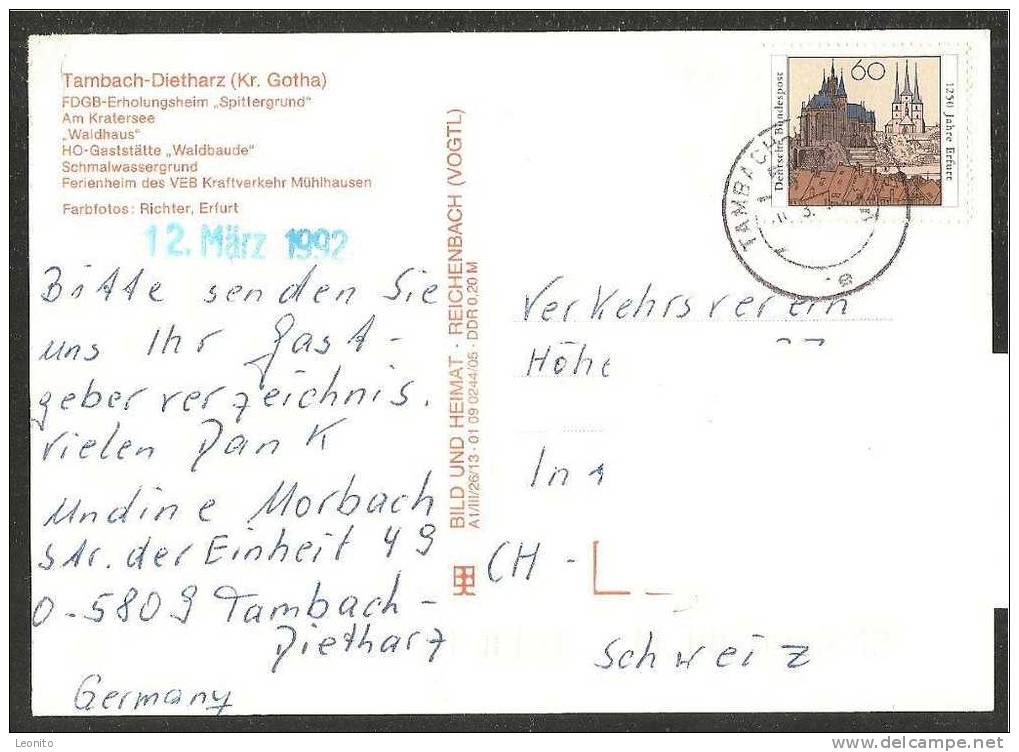 Tambach-Dietharz (Kr. Gotha)
FDGB-Erholungsheim „Spittergrund“
Am Kratersee
„Waldhaus“
HO-Gaststätte „Waldbaude“
Schmalwassergrund
Ferienheim des VEB Kraftverkehr Mühlhausen
Farbfotos: Richter, Erfurt
12. März 1992
Bitte senden Sie
uns Ihr Gast-
geberverzeichnis.
Vielen Dank
Undine Morbach
Str. der Einheit 49
O-5809 Tambach-
Dietharz
Germany
BILD UND HEIMAT · REICHENBACH (VOGTL)
A1/III/26/13 · 01 09 0244/05 · DDR 0,20 M
60
Deutsche Bundespost
1250 Jahre Erfurt
TAMBACH
e
Verkehrsverein
Höhe
In
CH -
Schweiz
Leonito
www.delcampe.net